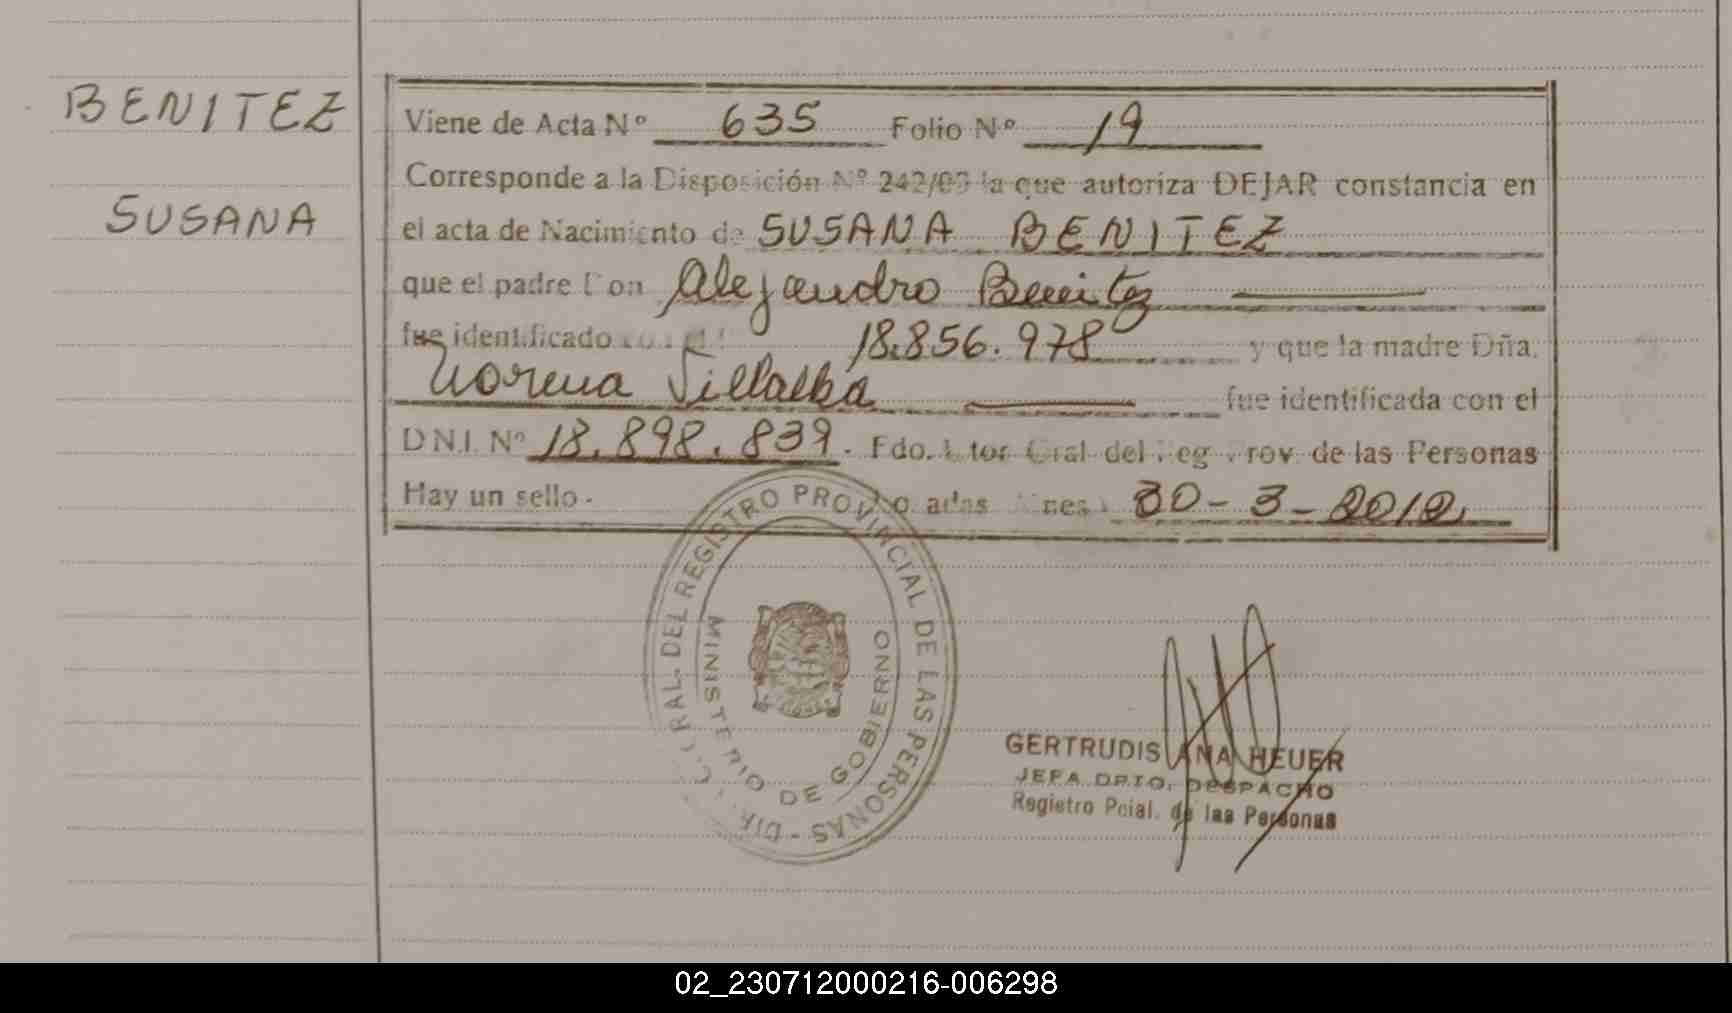 BENITEZ
SUSANA
Viene de Acta Nº 635 Folio Nº 19
Corresponde a la Disposición Nº 242/03 la que autoriza DEJAR constancia en
el acta de Nacimiento de SUSANA BENITEZ
que el padre Don Alejandro Benitez
fue identificado 18.856.978 y que la madre Dña.
Lorena Villalba fue identificada con el
D.N.I. Nº 18.898.839. Fdo. Gral del Reg Prov de las Personas
Hay un sello. Posadas Mnes 30-3-2012
DIR. GRAL. DEL REGISTRO PROVINCIAL DE LAS PERSONAS -
MINISTERIO DE GOBIERNO
GERTRUDIS ANA HEUER
JEFA DPTO. DESPACHO
Registro Pcial. de las Personas
02_230712000216-006298